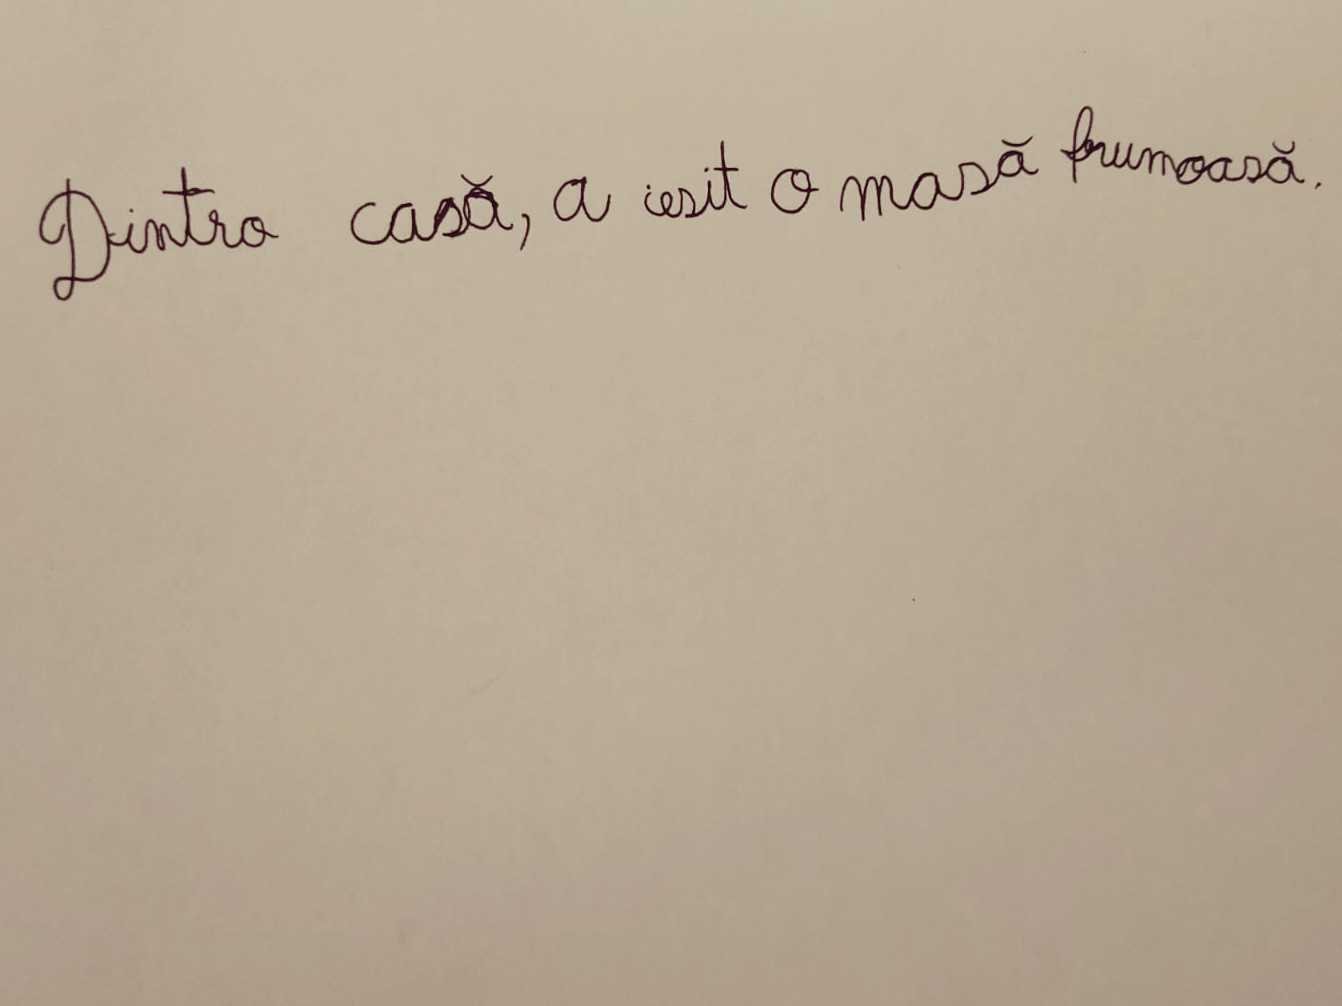 Dintro casă, a iesit o masă frumoasă.